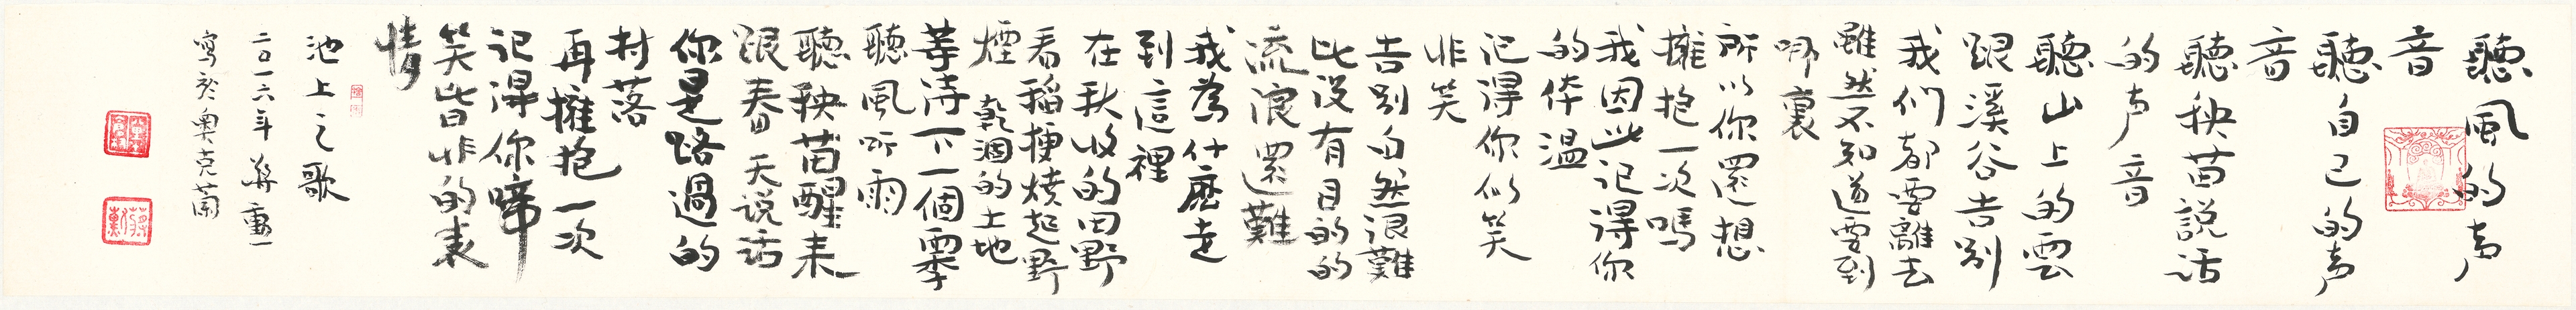 聽風的声
音
聽自己的声
音
聽秧苗説话
的声音
聽山上的雲
跟溪谷告别
我们都要離去
雖然不知道要到
哪裏
所以你還想
擁抱一次嗎
我因此记得你
的体温
记得你似笑
非笑
告别自然很難
比没有目的的
流浪還難
我為什麼走
到這裡
在秋收的田野
看稻梗燒起野
煙 乾涸的土地
等待下一個季
聽風听雨
聽秧苗醒来
跟春天说话
你是路過的
村落
再擁抱一次
记得你啼
笑皆非的表
情
池上之歌
二〇一六年 蔣勳
寫於奧克蘭